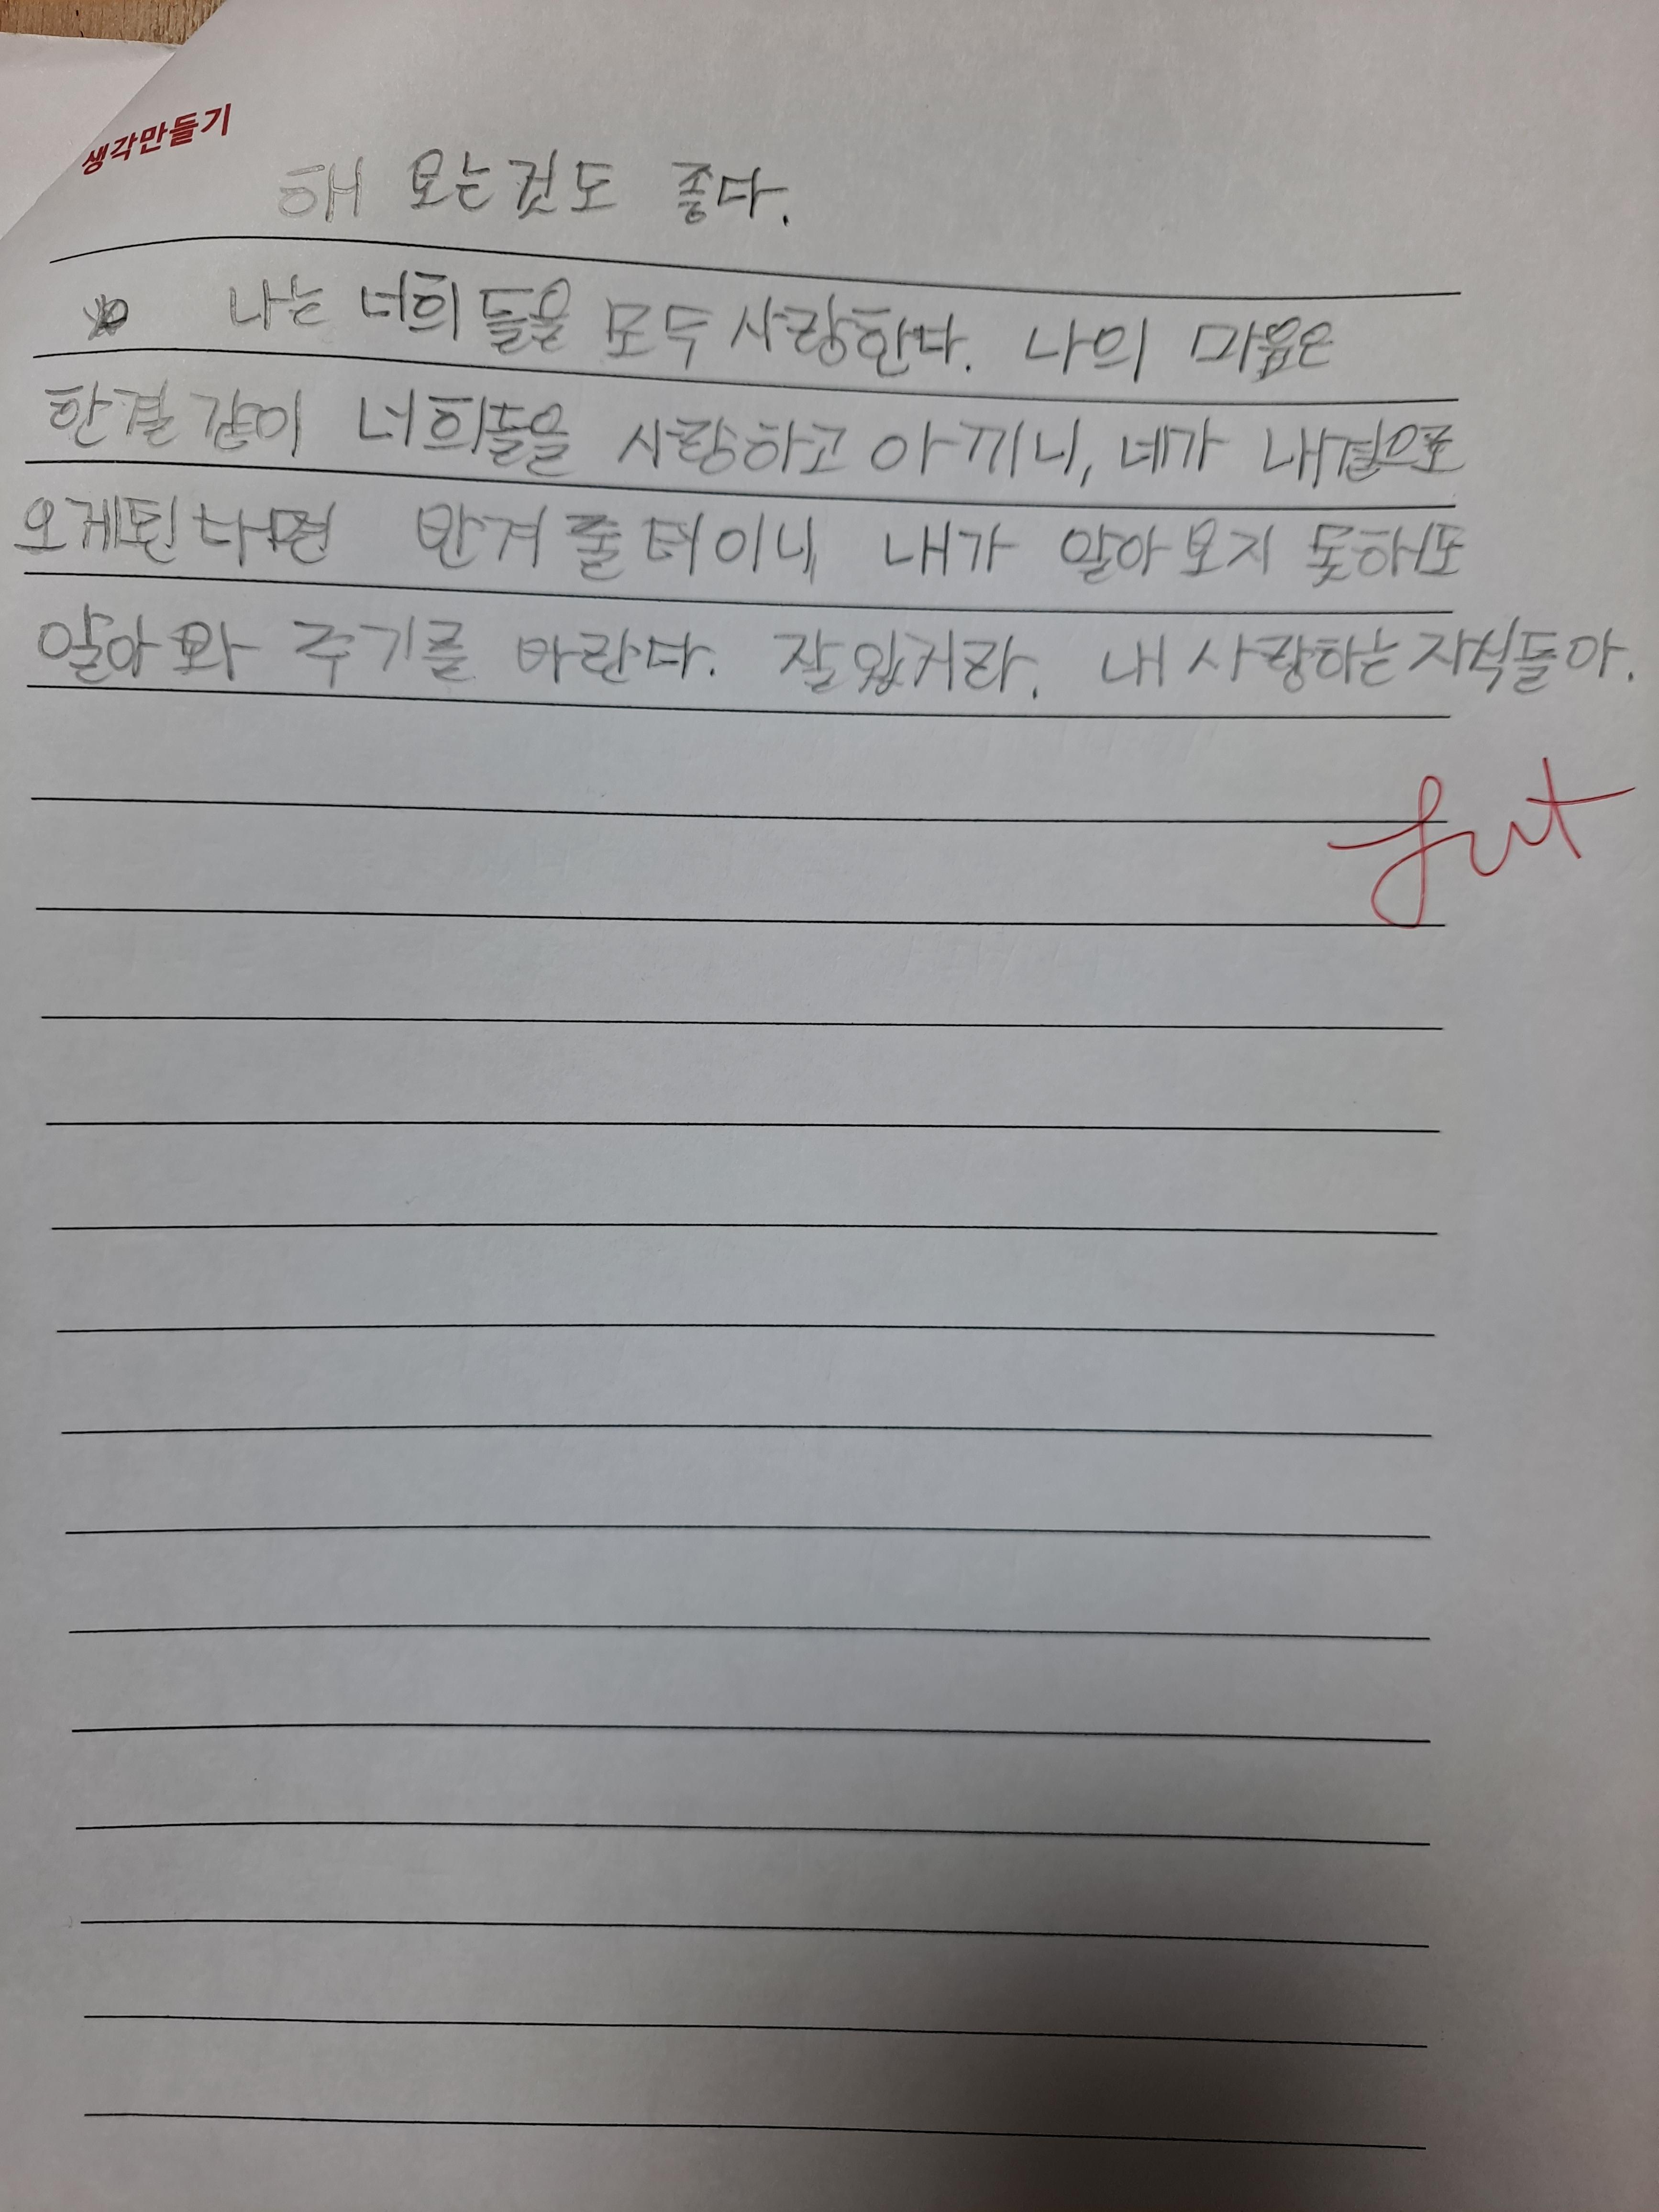 생각만들기
해 보는것도 좋다.
나는 너희들을 모두 사랑한다. 나의 마음은
한결같이 너희들을 사랑하고 아끼니, 네가 내곁으로
오게된다면 반겨 줄 터이니 내가 알아보지 못해도
알아봐 주기를 바란다. 잘있거라. 내 사랑하는 자식들아.